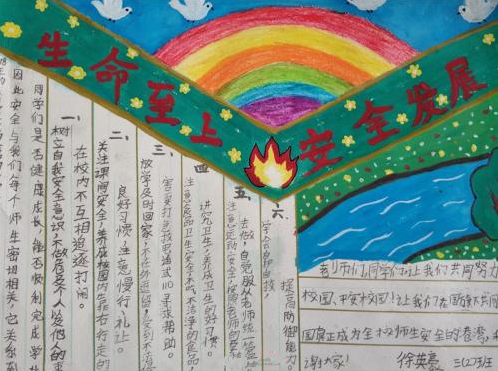 生命至上 安全发展
因此安全与我们每个师生密切相关,它关系到
同学们是否健康成长,能否顺利完成学业
一、
树立自我安全意识,不做危害人以及他人的事
在校内不互相追逐打闹。
二、
关注课间安全,养成校园内靠右行走的
良好习惯,注意慢行、礼让。
三、
放学及时回家,不在外逗留,
害要打110寻求帮助。
四
注意食品卫生安全,不吃不洁净的食品,
讲究卫生,养成卫生的好习惯。
五
注意运动安全,按照老师的要
去做,自觉服从老师统一
六、
提高防御能力。
老师们同学们让我们共同努力
校园、平安校园!让我们在国旗下共同
园真正成为全校师生安全的
谢谢大家!
徐英豪 三(2)班